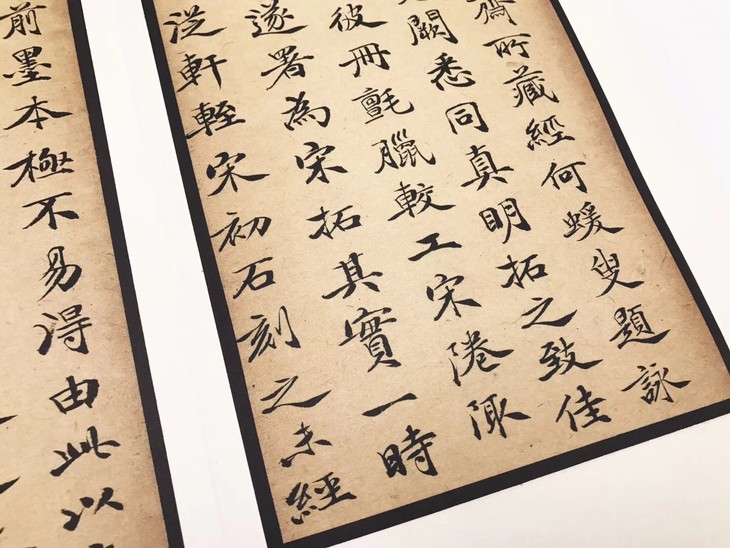 齋所藏經何蝯叟題詠
闕悉同真明拓之致佳
彼冊氈臘較工宋
遂署為宋拓其實一時
軒輊宋初石刻之未經
前墨本極不易得由此以